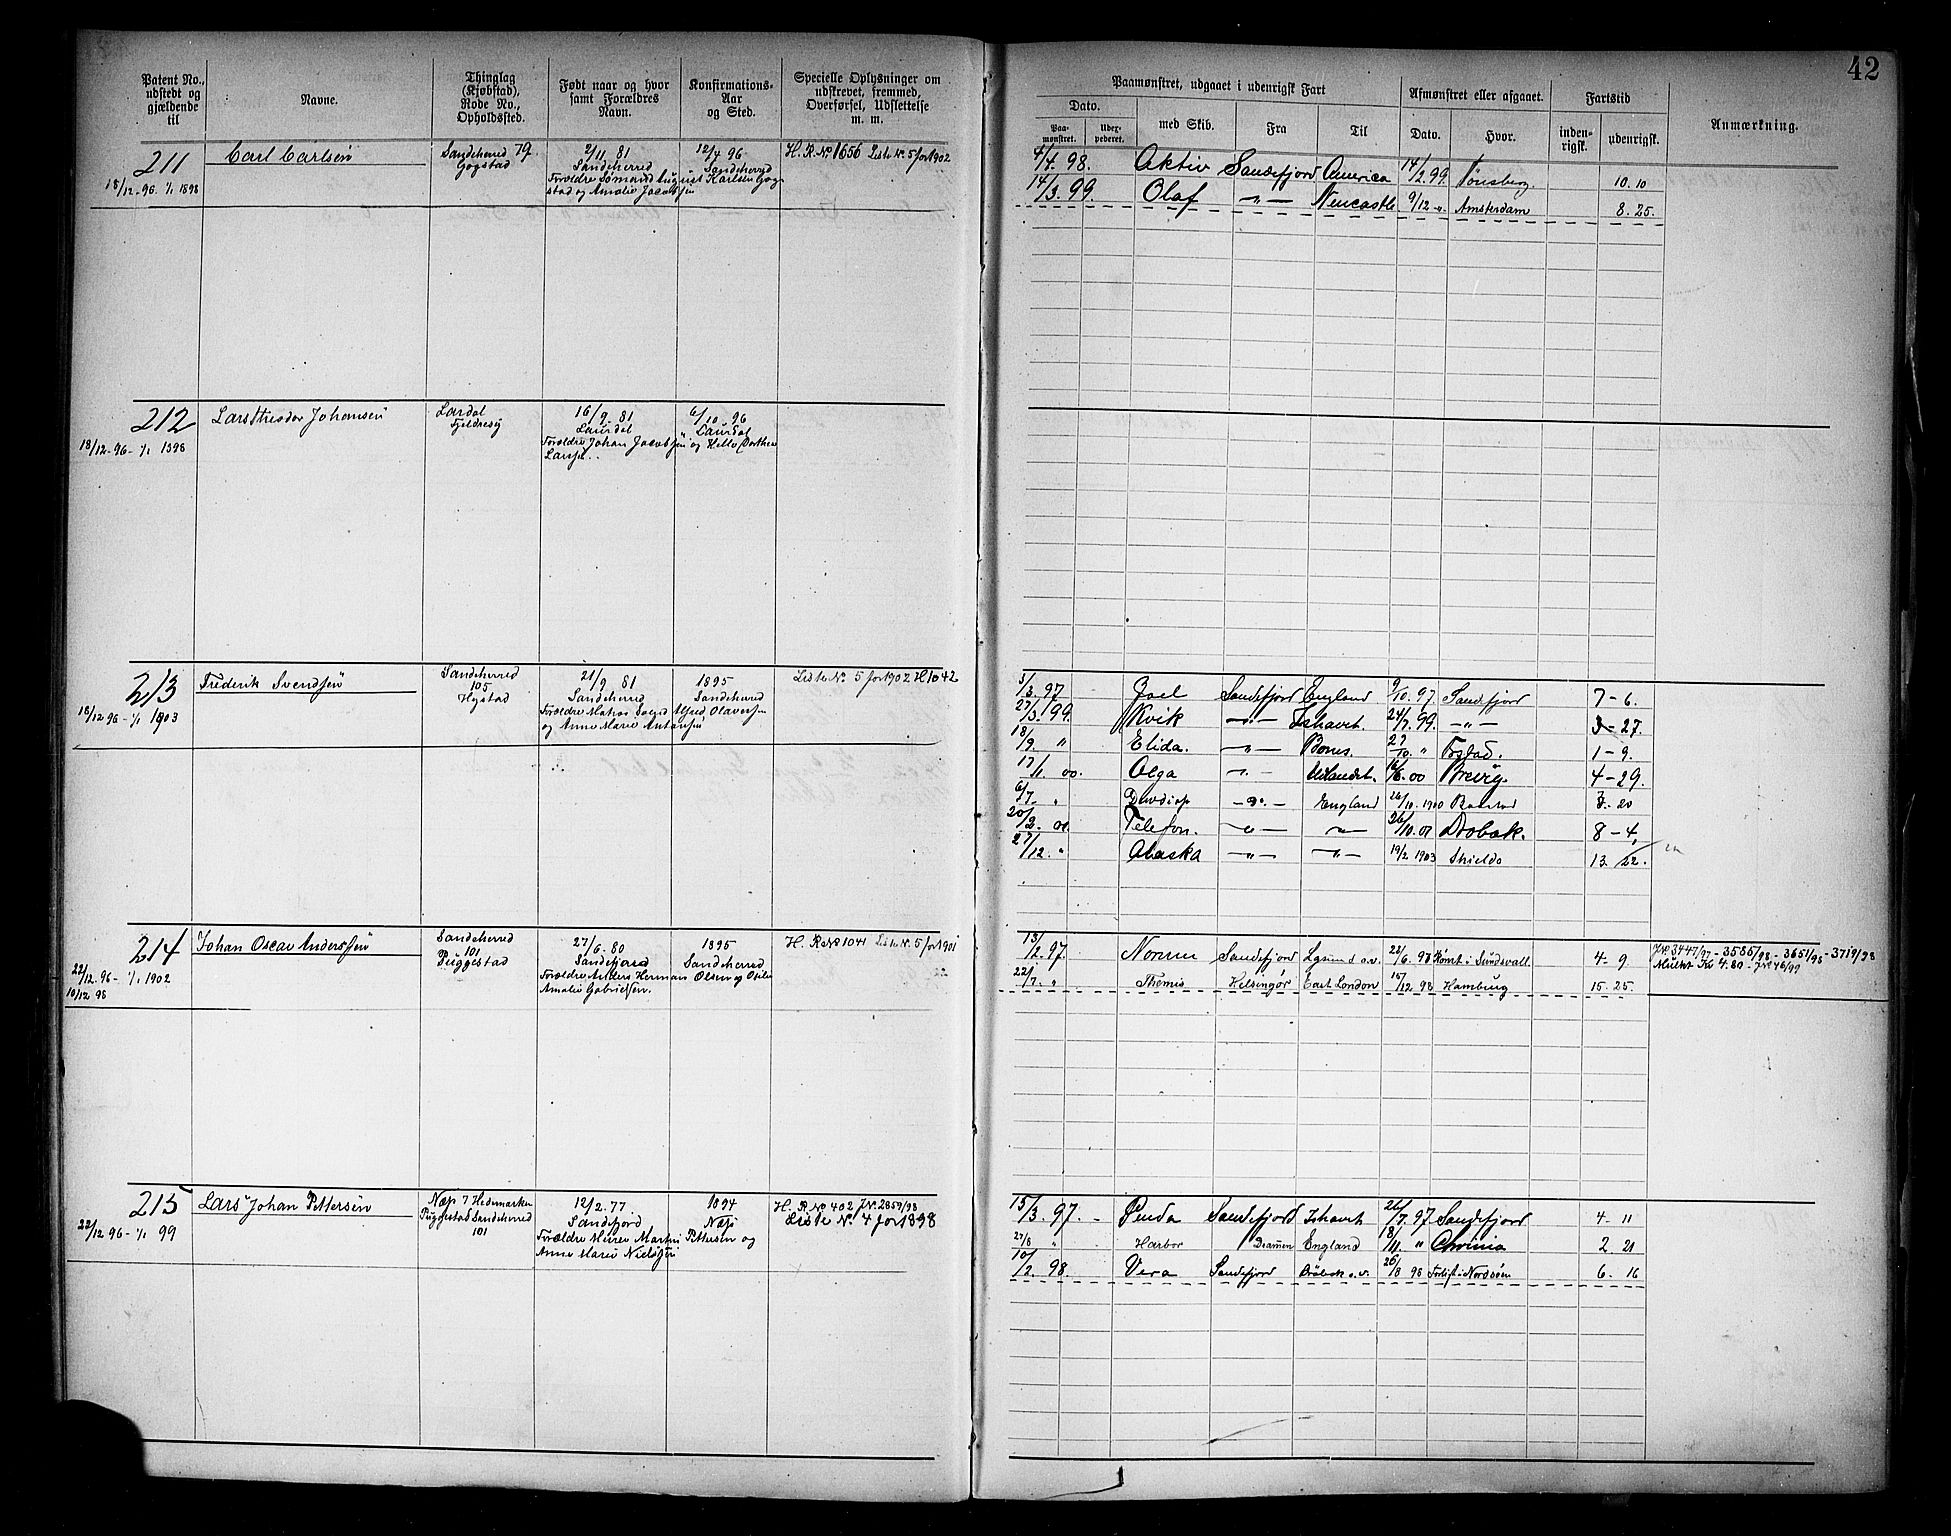 42
Patent No., udstedt og gjældende til
Navne.
Thinglag (Kjøbstad), Rode No., Opholdssted.
Født naar og hvor samt Forældres Navn.
Konfirmations-Aar og Sted.
Specielle Oplysninger om udskrevet, fremmed, Overførsel, Udslettelse m. m.
Paamønstret, udgaaet i udenrigsk Fart
Dato.
Paa-mønstret.
med Skib.
Fra
Til
Afmønstret eller afgaaet.
Dato.
Hvor.
Fartstid
inden-rigsk.
udenrigsk.
Anmærkning.
211
18/12-96. 1/1 1898
Carl Carlsen
Sandeherred 79.
Gogstad
2/11 81
Sandeherred
Forældre Sømand August Karlsen Gog-
stad og Amalie Jacobsen
12/4 96
Sandeherred
H. R. No 1656 Liste No. 5 for 1902
4/4 98. Aktiv Sandefjord America 14/2 99. Tønsberg. 10. 10
14/3. 99. Olaf —〃— Newcastle 9/12 〃. Amsterdam 8. 25.
212
18/12-96- 1/1 1898
Lars Theodor Johansen
Lardal
16/9 81
Laurdal
Forældre Johan Jacobsen og Helle Dorthea
Larsd..
6/10 96
Laurdal
213
18/12 96- 1/1 1903
Frederik Svendsen
Sandeherred
105
Hystad
21/9 81
Sandeherred
Forældre Matros Svend Alfred Olavesen
og Anne Marie Antonsen
1895
Sandeherred
Liste No. 5 for 1902 H 1042
5/3. 97 Joel Sandefjord England 9/10. 97. Sandefjord 7-6.
27/3. 99. Kvik —〃— Ishavet. 24/7. 99. —〃— 3-27.
18/9. 〃 Elida. —〃— 27/10. 〃 1-9.
17/1. 00. Olga —〃— Udlandet. 16/6. 00 Brevig. 4-29.
6/7. 〃 —〃— England 26/10. 1900 3. 20
20/2. 01. Telefon. —〃— —〃— 26/10. 01 Drøbak. 8-4,
27/12. 〃 Alaska —〃— —〃— 19/2 1903 Shields 13. 22.
214
22/12. 96- 1/1 1902
10/12 98
Johan Oscar Anderssen
Sandeherred
101
Puggestad
27/6. 80
Sandefjord
Forældre Anders Herman Olsen og
Amalie Gabrielsen.
1895
Sandeherred
H. R No 1041 Liste No. 5 for 1901
13/2. 97. Norrun Sandefjord 22/6. 97 Rømt i Sundsvall. 4- 9. J.No. 3447/97 - 3585/98 - 3651/98 - 3719/98
Mulkt Kr 4.80 - J.No. 46/99
22/7. 〃 Themis Helsingør East London 15/12 98 Hamburg 15. 25.
215
22/12 96- 1/1 99
Lars Johan Pettersen
Næs 7 Hedemarken
Puggestad Sandeherred
101
12/2. 77
Sandefjord
Forældre Herren Martin Pettersen og
Anne Marie Nielssen
1894
Næs
H. R. No 402 J.No. 2859/98
Liste No. 4 for 1898
15/3. 97. Penda Sandefjord Ishavet 26/7. 97 Sandefjord 4- 11
27/8 〃 Harbor Drammen England 18/11. 〃 Chrinia 2. 21
10/2. 98. Vera Sandefjord Drøbak o.v. 26/8 98 Forlist i Nordsøen 6. 16